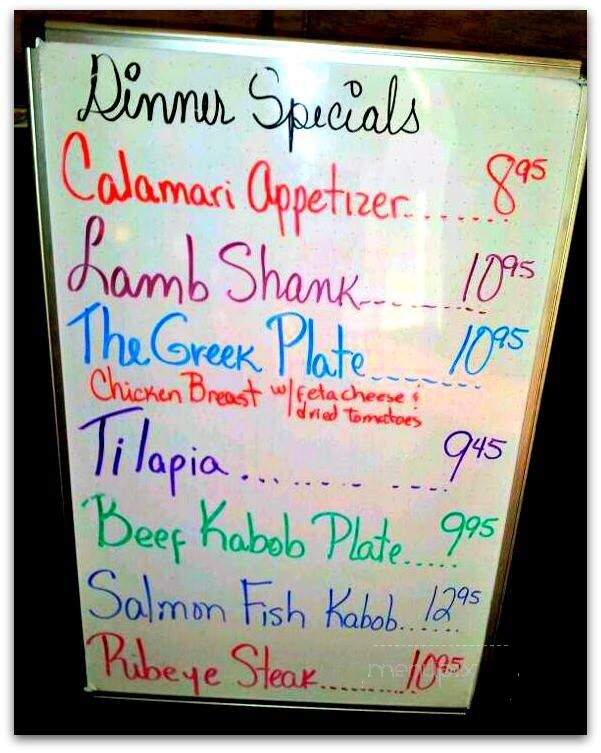 Dinner Specials
Calamari Appetizer....... 8.95
Lamb Shank........ 10.95
The Greek Plate....... 10.95
Chicken Breast w/ feta cheese &
dried tomatoes
Tilapia......... 9.45
Beef Kabob Plate..... 9.95
Salmon Fish Kabob...... 12.95
Ribeye Steak......... 10.95
menupix